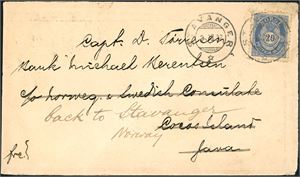 STAVANGER
20
Capt. D. Tönnesen
Bank "Michael Kerentsen
c/o Norweg. & Swedish Consulate
back to Stavanger
Norway
Cocos Island
Java